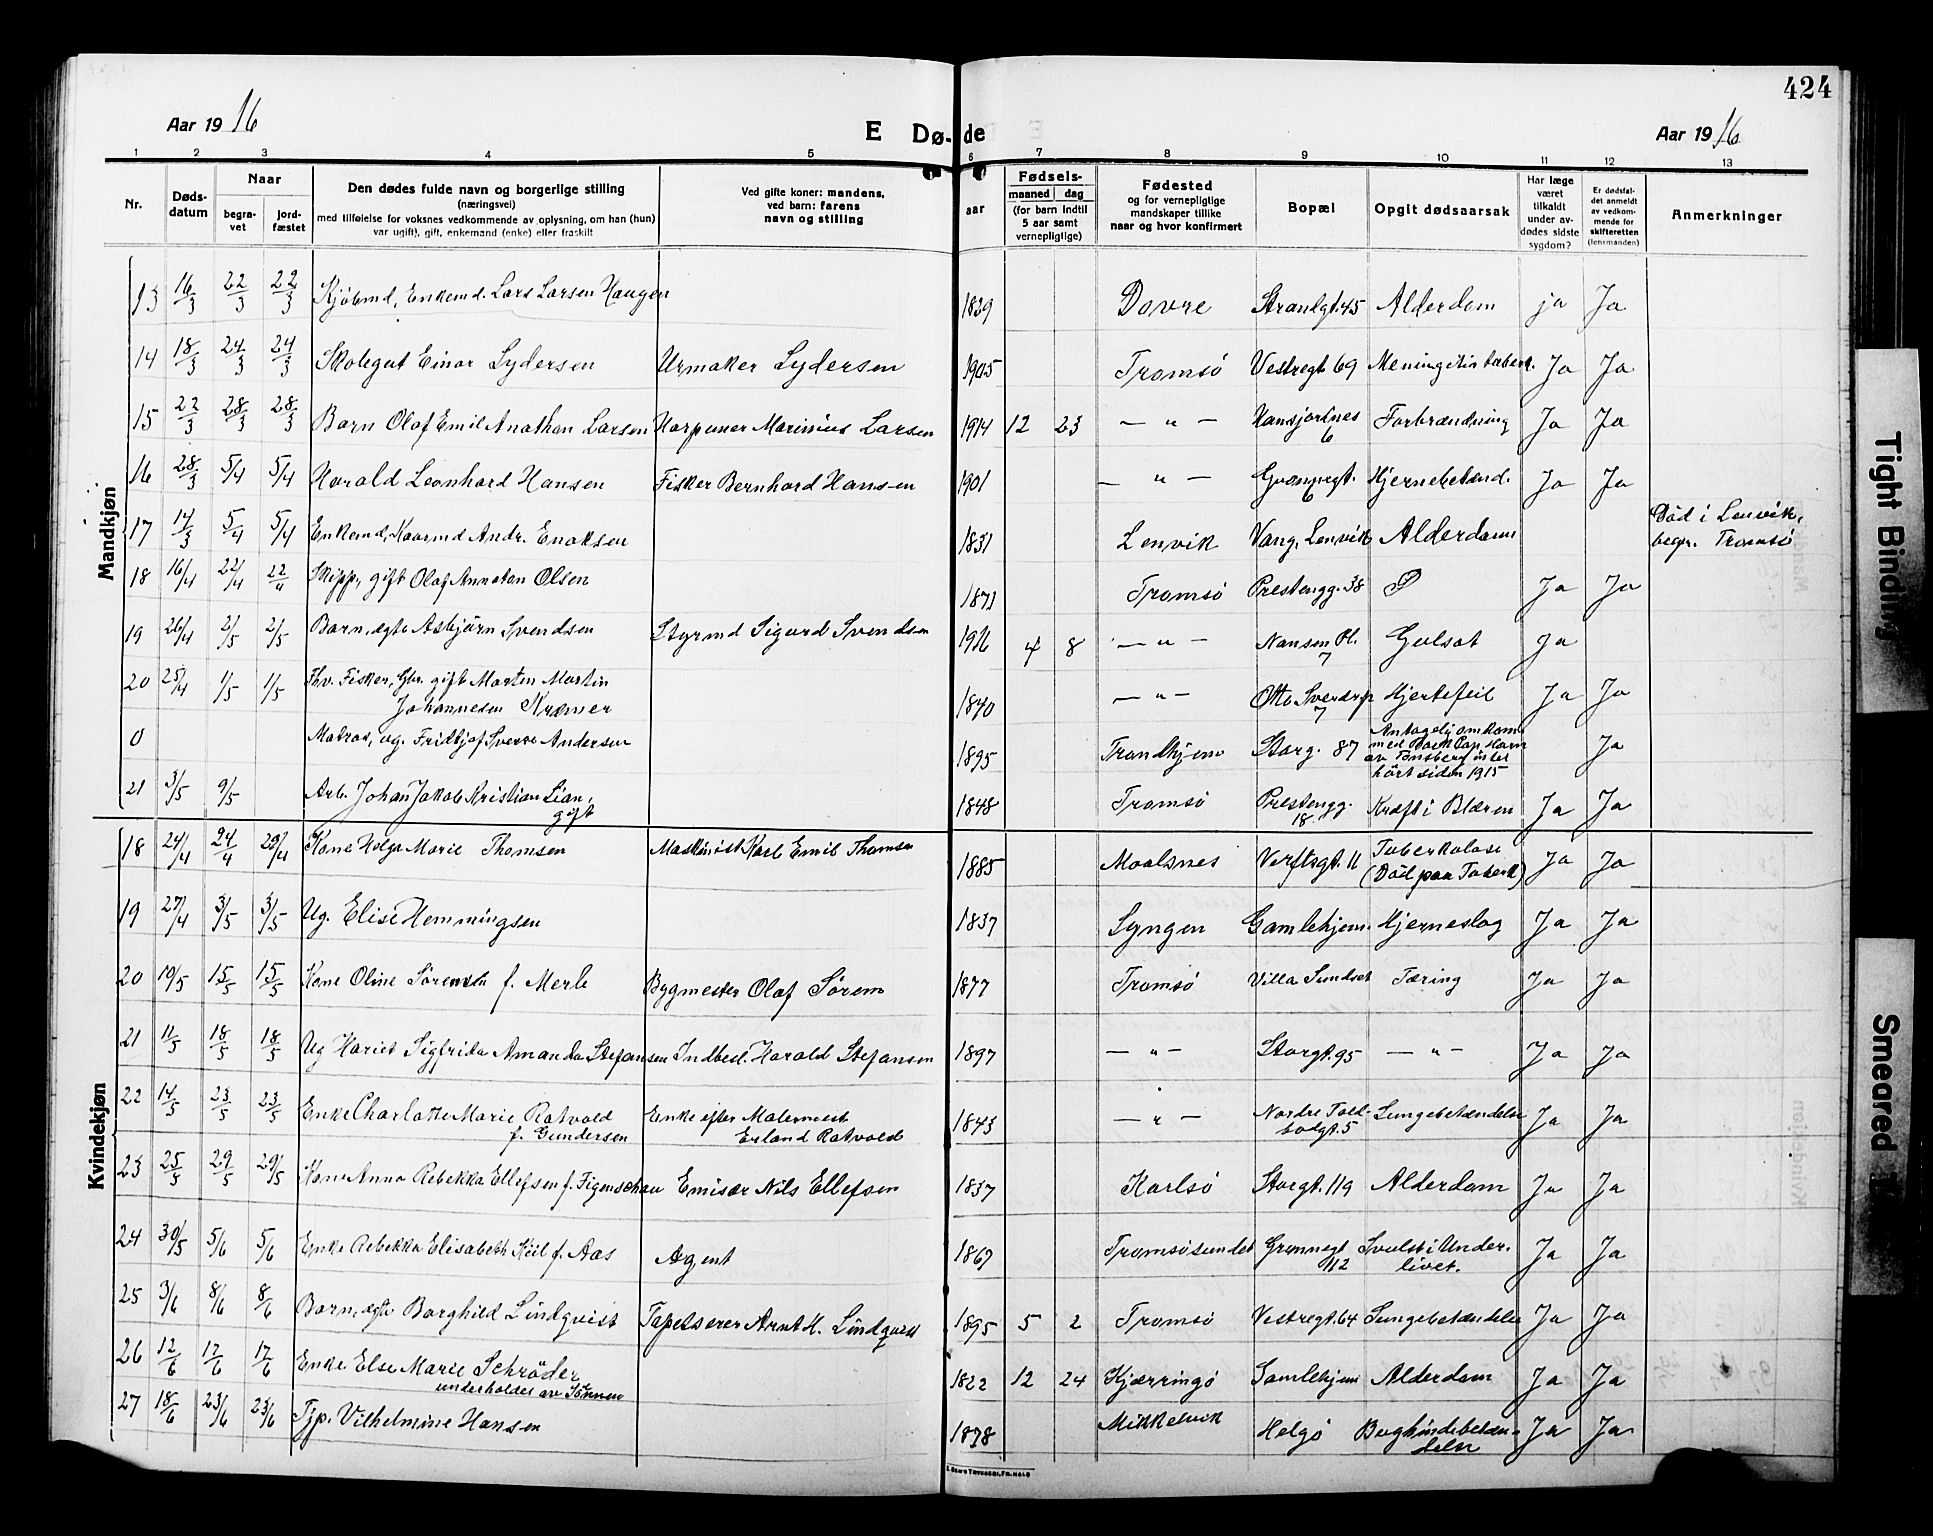 424
Aar 19 16
E Dø-
de
Aar 19 16
1 2 3 4 5 6 7 8 9 10 11 12 13
Nr.
Døds-
datum
Naar
begra-
vet
jord-
fæstet
Den dødes fulde navn og borgerlige stilling
(næringsvei)
med tilføielse for voksnes vedkommende av oplysning, om han (hun)
var ugift), gift, enkemand (enke) eller fraskilt
Ved gifte koner: mandens,
ved barn: farens
navn og stilling
aar
Fødsels-
maaned dag
(for barn indtil
5 aar samt
vernepligtige)
Fødested
og for vernepligtige
mandskaper tillike
naar og hvor konfirmert
Bopæl
Opgit dødsaarsak
Har læge
været
tilkaldt
under av-
dødes sidste
sygdom?
Er dødsfal-
det anmeldt
av vedkom-
mende for
skifteretten
(lensmanden)
Anmerkninger
Mandkjøn
13 16/3 22/3 22/3 Kjøbmd, Enkemd. Lars Larsen Haugen 1839 Dovre Strandgt. 45 Alderdom ja Ja
14 18/3 24/3 24/3 Skolegut Einar Lydersen Urmaker Lydersen 1905 Tromsö Vestregt 69 Meningitis tuberk. Ja Ja
15 22/3 28/3 28/3 Barn Olaf Emil Anathon Larsen Harpuner Marinius Larsen 1914 12 23 — " — Hansjordnes 6 Forbrændning Ja Ja
16 28/3 5/4 5/4 Harald Leonhard Hansen Fisker Bernhard Hansen 1901 — " — Grønnegt. 6 Hjernebetænd. Ja Ja
17 14/3 5/4 5/4 Enkemd, Kaarmd Andr. Enoksen 1831 Lenvik Vang, Lenvik Alderdom Död i Lenvik,
begr. Tromsö
18 16/4 22/4 22/4 Skipp, gift Olaf Annatan Olsen 1871 Tromsö Prestengg. 38 Ja Ja
19 26/4 2/5 2/5 Barn, ægte Asbjörn Svendsen Styrmd Sigurd Svendsen 1916 4 8 — " — Nansen Pl. 7 Gulsot Ja
20 25/4 1/5 1/5 Fhv. Fisker, Gbr. gift Morten Martin
Johannesen Kræmer 1840 — " — Otto Sverdrup 7 Hjertefeil Ja Ja
0 Matros, ug. Fridtjof Sverre Andersen 1895 Trondhjem Storg. 87 Antagelig omkom
med Bark Cap. Horn
av Tønsberg
hört siden 1915 Ja
21 3/5 9/5 Arb. Johan Jakob Kristian Lian,
gift 1848 Tromsö Prestengg.
18 Kræft i Blæren Ja Ja
Kvindekjøn
18 24/4 24/4 28/4 Kone Helga Marie Thomsen Maskinist Karl Emil Thomsen 1885 Maalsnes Verftsgt. 11 Tuberkulose
(Död paa Tuberk) Ja Ja
19 27/4 3/5 3/5 Ug. Elise Hemmingsen 1837 Lyngen Gamlehjem. Hjerneslag Ja Ja
20 10/5 15/5 15/5 Kone Oline Sörensen f. Merli Bygmester Olaf Sörens 1877 Tromsö Villa Sundset Tæring Ja Ja
21 11/5 18/5 18/5 Ug Hariet Sigfrida Amanda Stefansen Indbest. Harald Stefansen 1897 — " — Storgt. 95 — " — Ja Ja
22 14/5 23/5 23/5 Enke Charlotte Marie Ratvold
f. Gundersen Enke efter Malermest
Erland Ratvold 1843 — " — Nordre Told-
bodgt. 5 Lungebetændelse Ja Ja
23 25/5 29/5 29/5 Kone Anna Rebekka Ellefsen f. Figenschau Emisær Nils Ellefsen 1837 Karlsö Storgt. 119 Alderdom Ja Ja
24 30/5 5/6 5/6 Enke Rebekka Elisabeth Keil f. Aas Agent 1867 Tromsösundet Grønnegt
112 Svulst i Under-
livet. Ja Ja
25 3/6 8/6 8/6 Barn, ægte Borghild Lindqvist Tapetserer Arnt K. Lindqvist 1895 5 2 Tromsö Vestregt. 64 Lungebetændelse Ja Ja
26 12/6 17/6 17/6 Enke Else Marie Schröder
underholdes av Sönnen 1822 12 24 Kjærringö Gamlehjem Alderdom Ja Ja
27 18/6 23/6 23/6 Tjp. Vilhelmine Hansen 1878 Mikkelvik Helgö Bughindebetæn-
delse Ja Ja
Tight Binding
Smeared